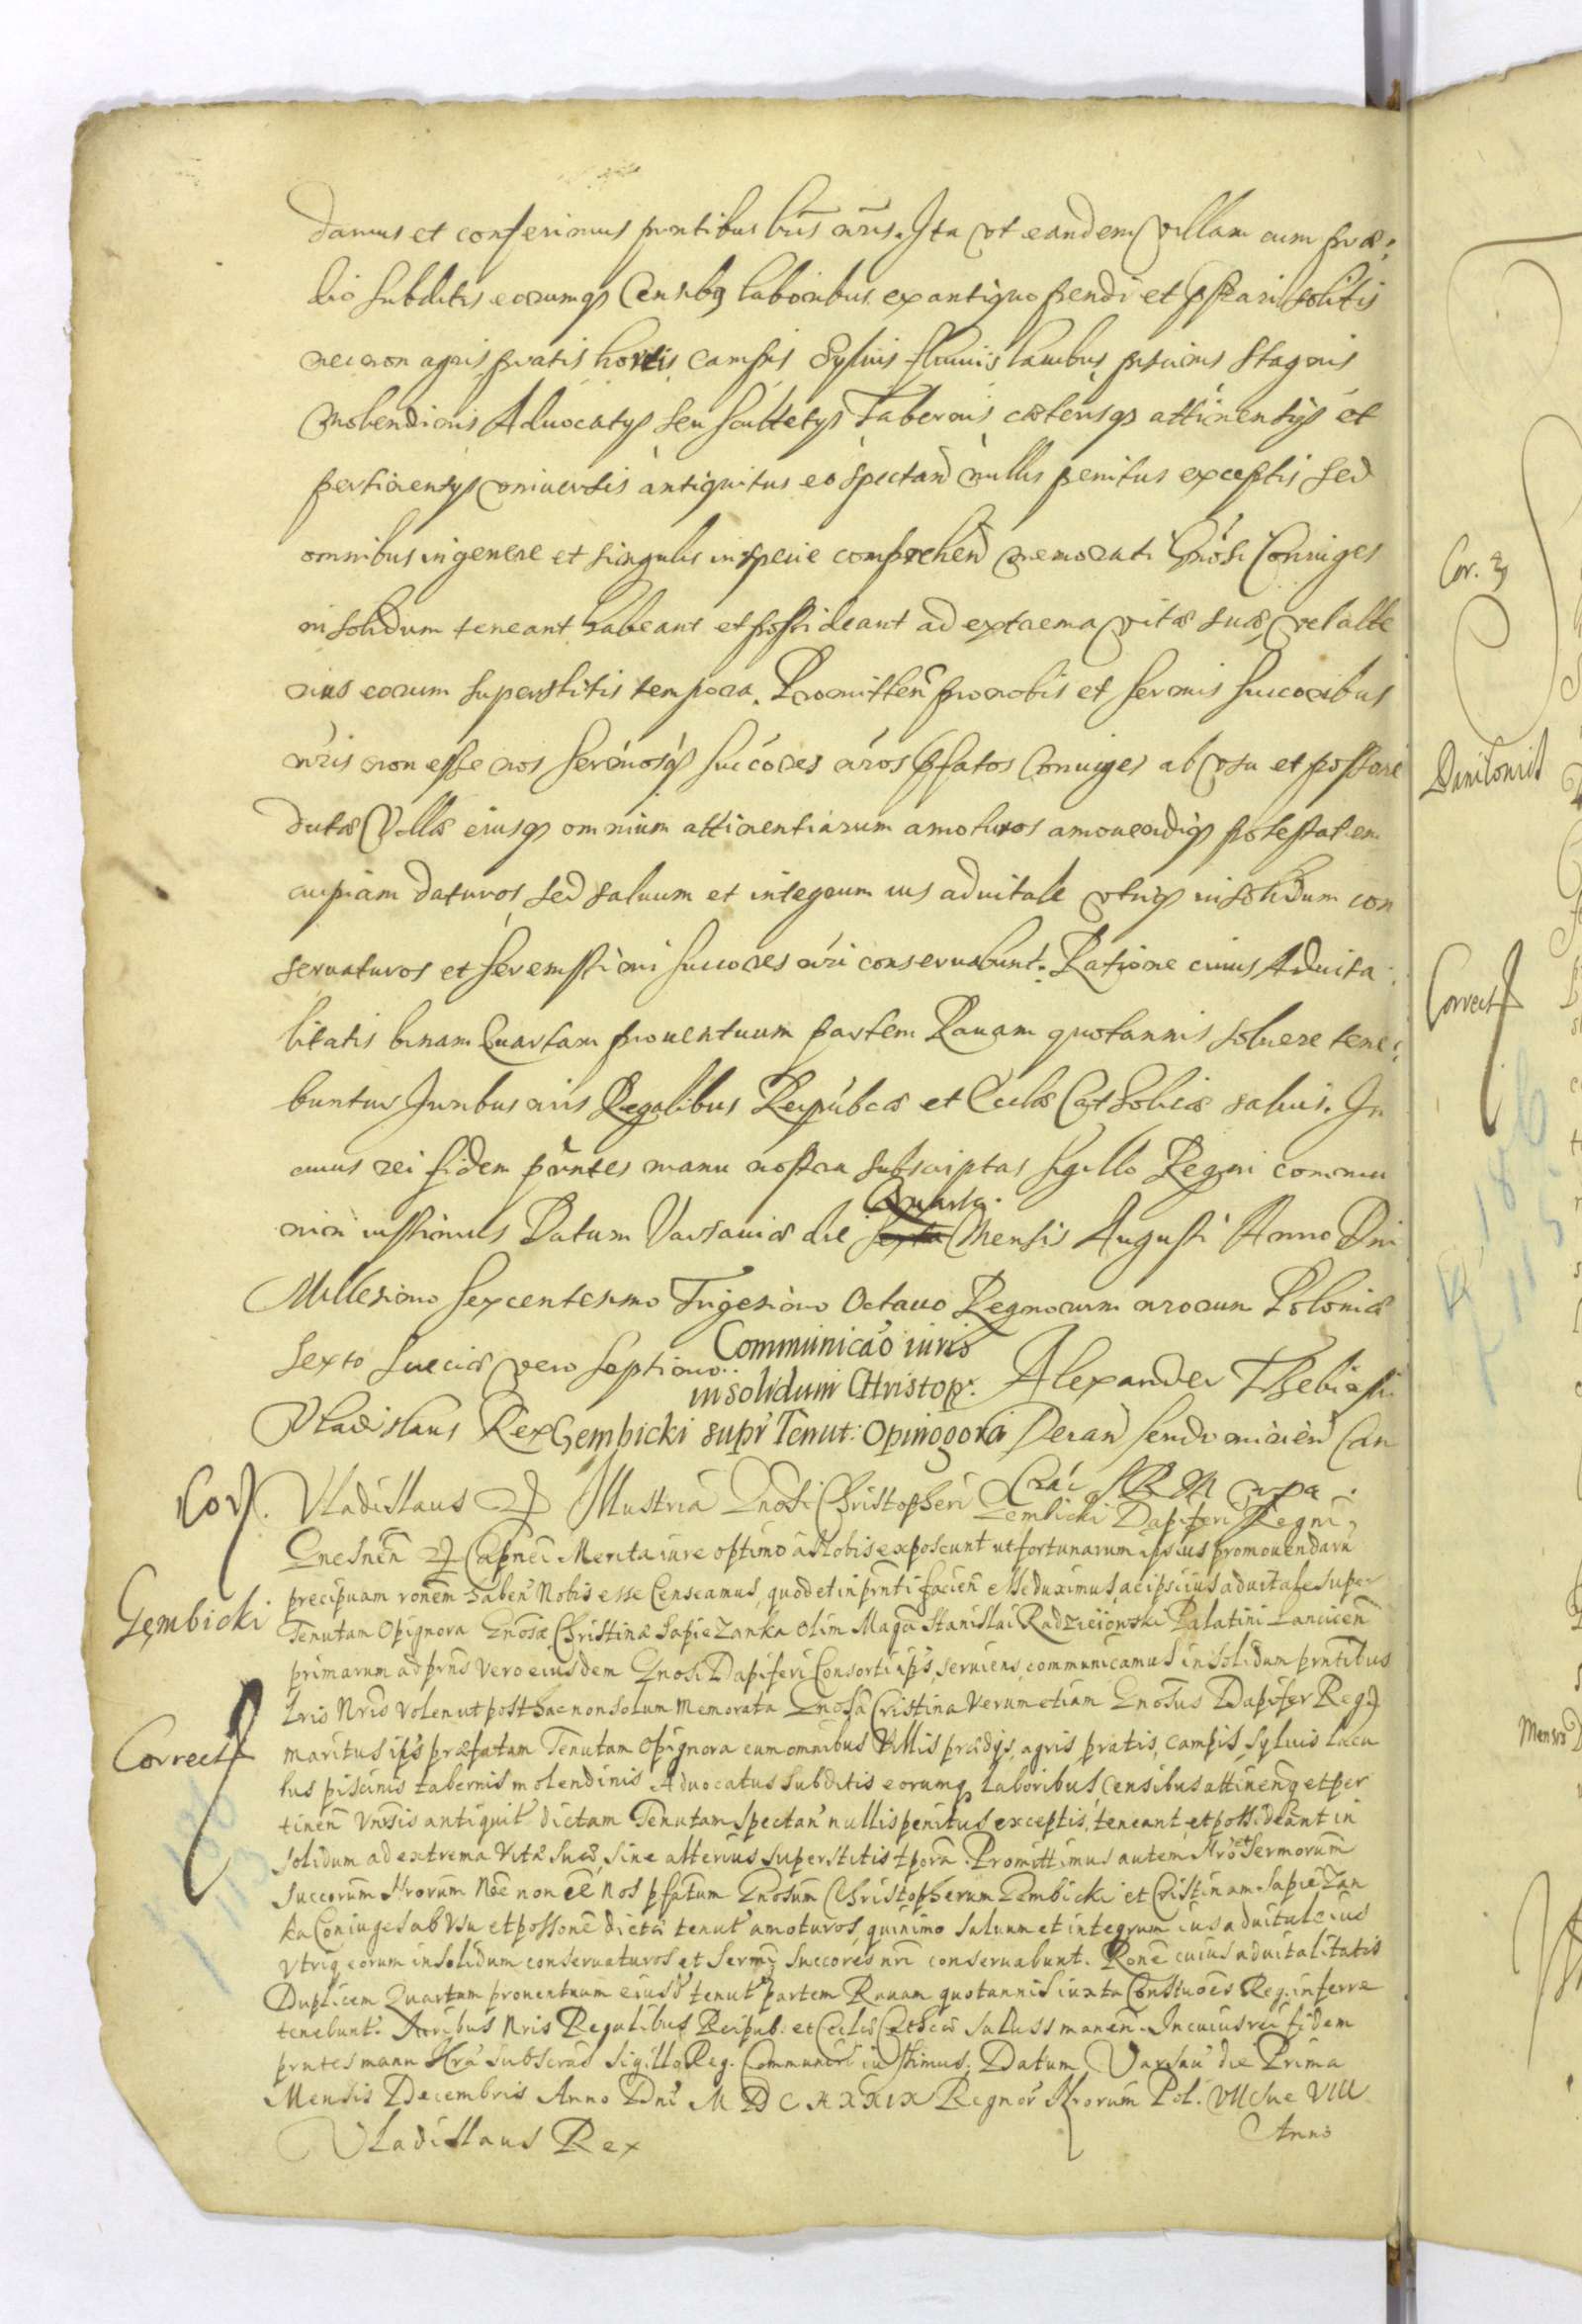 damus et conferimus pntibus lris nris. Ita vt eandem villam cum præ:
dio subditis eorumq Censibq laboribus ex antiquo pendi et pstari solitis
necnon agris pratis hortis campis Sylvis fluuis lacubus piscinis stagnis
molendinis Aduocatys seu scultetys Tabernis cæterisq attinentys et
pertinentys vniuersis antiquitus eo spectand nullis penitus exceptis sed
omnibus in genere et singulis in specie comprehend memorati Gnosi Coniuges
in solidum teneant habeant et possideant ad extrema vitæ suæ, vel alte
rius eorum superstitis tempora. Promitten pro nobis et sermis succoribus
nris non esse nos sermosq succores nros pfatos Coniuges ab vsu et possone
dictæ Villæ eiusq omnium attinentiarum amoturos amouendiq potestatem
cuipiam daturos sed saluum et integrum ius aduitale vtriq in solidum con
seruaturos et serenissimi succores nri conseruabunt. Ratione cuius Aduita:
litatis binam Quartam prouentuum partem Rauam quotannis soluere tene:
buntur Iuribus nris Regalibus Reipubcæ et Ecclæ Catholicæ saluis. In
cuius rei fidem pñtes manu nostra subscriptas sigillo Regni commu
niri iussimus Datum Varsauiæ die sexta Quarta. Mensis Augusti Anno Dni
Millesimo sexcentesimo Trigesimo Octauo Regnorum nrorum Poloniæ
sexto Sueciæ vero septimo.
Communicao iuris
in solidum Christop.
Gembicki supr Tenut: Opinogora
Alexander Trebinski
Vladislaus Rex
Decan Sendomirien Can
Crac S R M
Cor.
Vladislaus Illustria Gnosi Christopheri Gembicki Dapiferi Regni,
Gnesnen Capnei Merita iure optimo a Nobis exposcunt ut fortunarum ipsius promouendaru
Gembicki
precipuam ronem haben Nobis esse Censeamus, quod et in prnti facien esse duximus ac ipsi ius aduitale super
Tenutam Opignora Gnosæ Christinæ Sapiezanka olim Magci Stanislai Radzieiowski Palatini Lancicen
primarum ad prns vero eiusdem Gnosi Dapiferi Consorti ipis seruiens, communicamus in solidum prntibus
lris Nris volen ut post hac non solum memorata Gnosa Cristina verum etiam Gnosus Dapifer Reg
Correct
maritus ips præfatam Tenutam Opignora cum omnibus Villis prædys, agris pratis, campis, syluis lacu
bus piscinis tabernis molendinis Aduocatus subditis eorumq laboribus, Censibus attinen q et per
tinen Vnsis antiquit dictam Tenutam spectan nullis penitus exceptis, teneant, et possideant in
solidum ad extrema Vitæ suæ, sine alterius superstitis tpora. Promittimus autem Nro et sermorum
succorum Nrorum noe non ee nos pfatum Gnosum Christopherum Gembicki et Cristinam Sapiezan
ka Coniuges ab Vsu et possone dictæ tenut amoturos, quinimo saluum et integrum ius aduitale ius
vtriq eorum in solidum conseruaturos et sermi succores nri conseruabunt. Rone cuius aduitalitatis
Duplicem Quartam prouentuum eiusd tenut partem Rauam quotannis iuxta Constuoes Reg. inferre
tenebunt. Iuribus Nris Regalibus Reipub. et Ecclæ Cathcæ saluis manen. In cuius rei fidem
prntes manu Nra subscras sigillo Reg. Communiri iussimus. Datum Varsau die Prima
Mensis Decembris Anno Dni M D C XXXIX Regnor Nrorum Pol. VII Sue VIII
Vladislaus Rex
Anno
Cor.
Danilowicz
Correct
Mensis